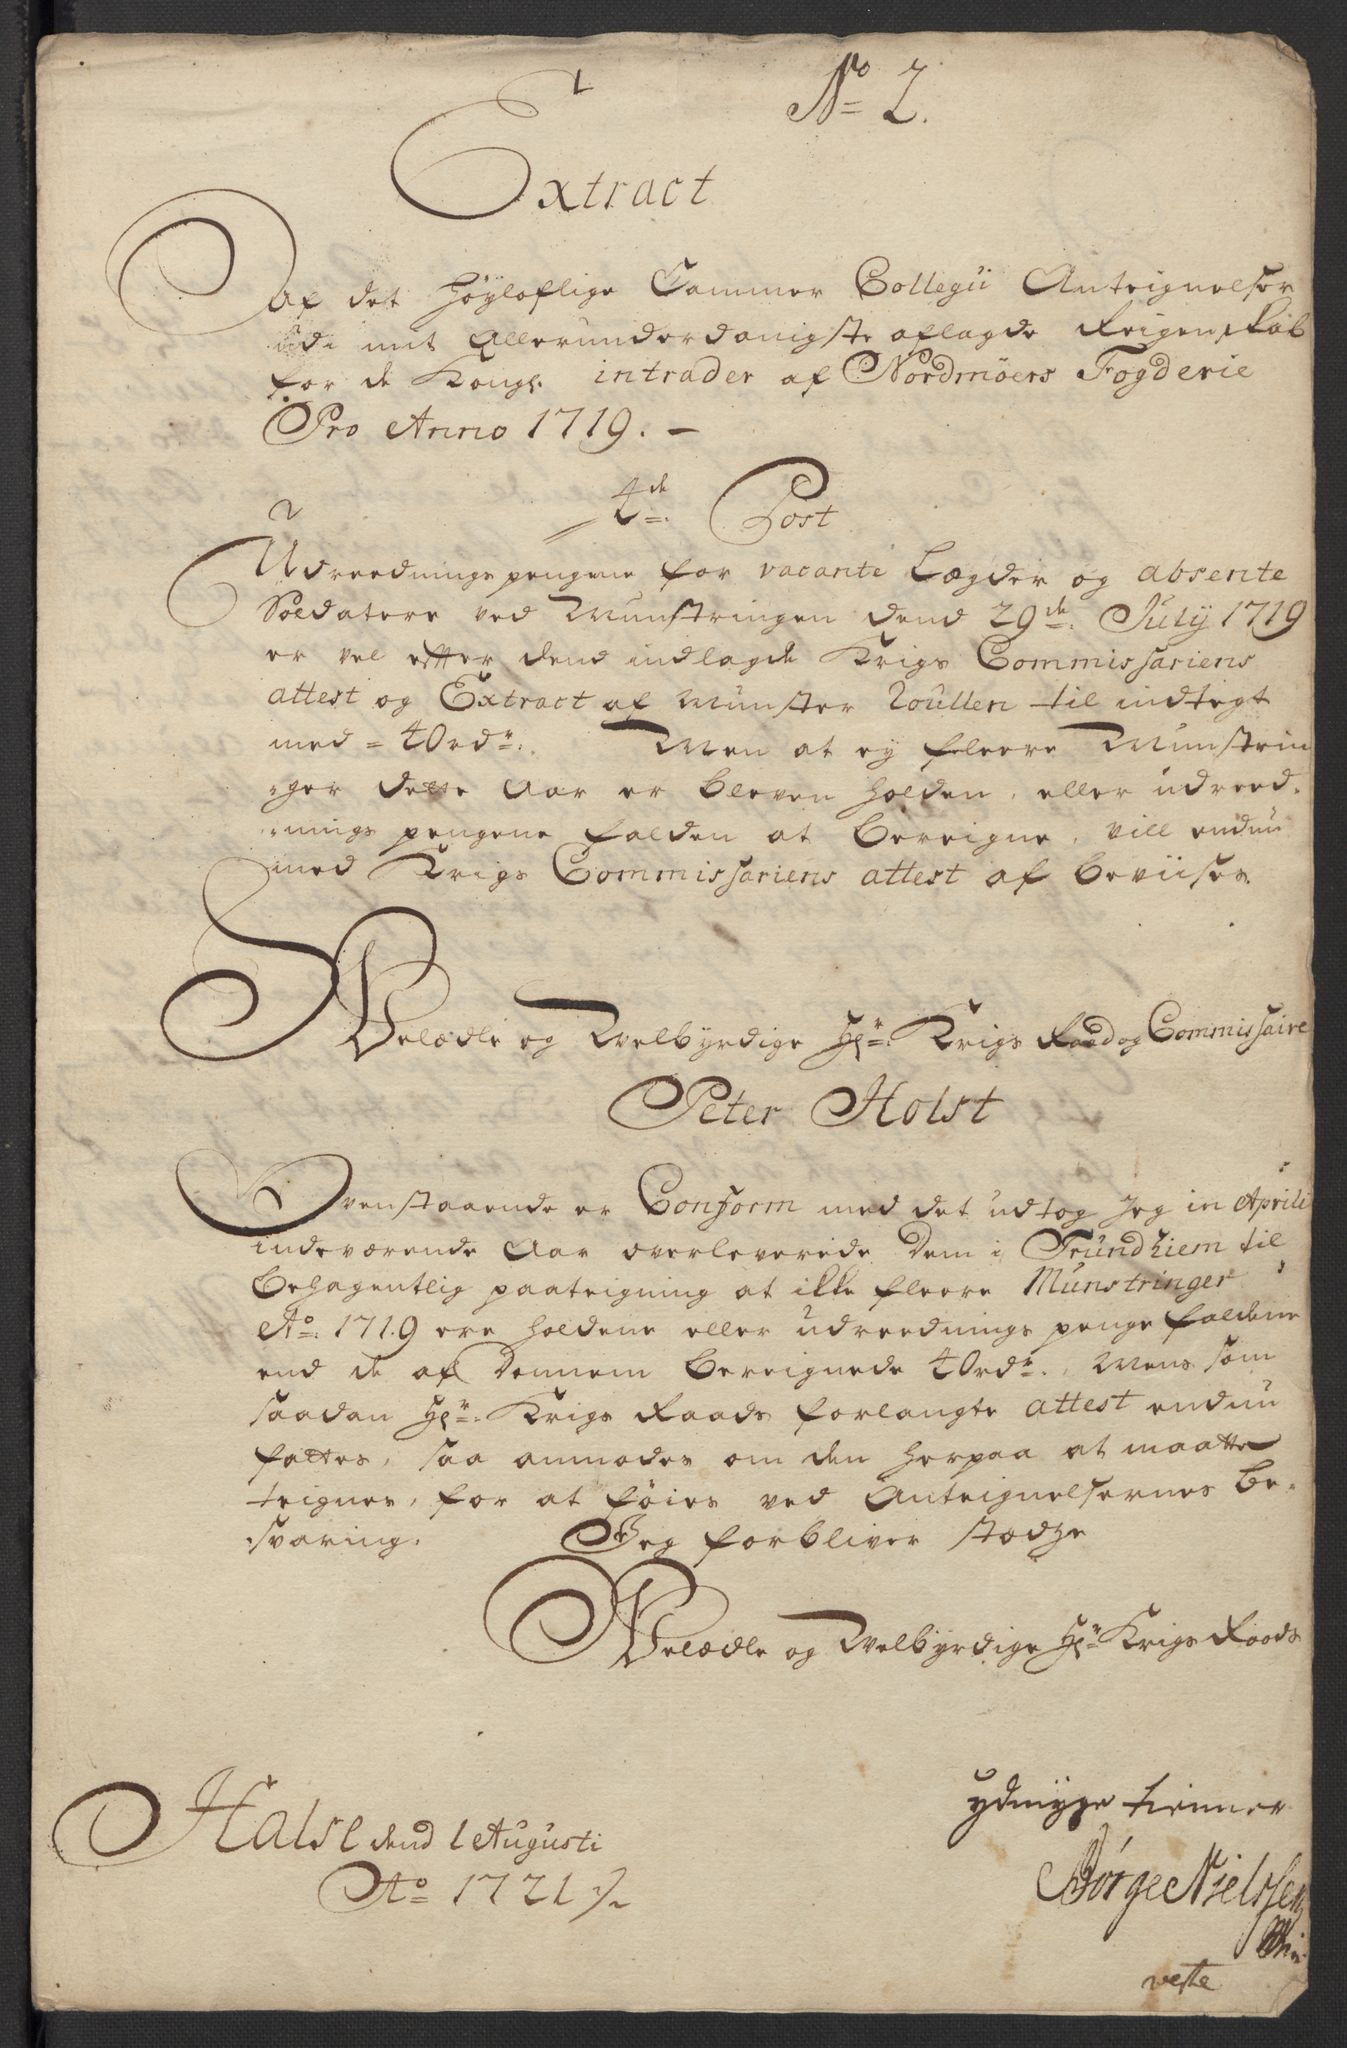 No 2.
Extract
Af det Høyloflige Cammer Collegii Anteignelser
udi mit Allerunderdanigste aflagde Reigenskab
for de Kongl: intrader af Nordmøers Fogderie
Pro Anno 1719. –
4de Post
Udreednings pengene for vacante Lægder og absente
Soldatere ved Munstringen dend 29de July 1719
er vel efter dend indlagde Krigs Commissariens
attest og Extract af Munster Roullen til indtegt
med = 40rdr: Men at ey fleere Munstrin
ger dette Aar er bleven holden, eller udreed-
nings pengene falden at bereigne, vill endnu
med Krigs Commissariens attest af beviises.
Velædle og Welbyrdige Hr: Krigs Raad og Commissaire
Peter Holst
Ovenstaaende er Conform med det udtog Jeg in Aprili
indeværende Aar overleverede Dem i Trundhiem til
behagentlig paateigning at ikke fleere Munstringer
Ao: 1719 ere holdene eller udreednings penge faldene
end de af Dennem bereignede 40rdr:, Mens som
saadan Hr: Krigs Raads forlangte attest endnu
fattes, saa anmodes om den herpaa at maatte
teignes, for at føies ved Anteignelsernes be-
svaring. Jeg forbliver stedze
Velædle og Welbyrdige Hr: Krigs Raads
ydmyge tienner
Halse dend 1 Augusti
Børge Nielssen
Ao 1721 ./.